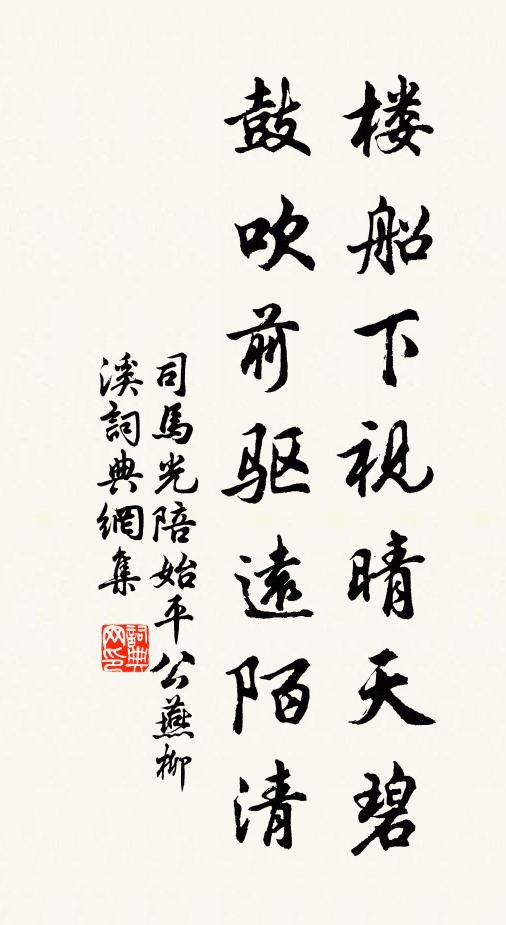 楼船下視晴天碧
鼓吹前驱遠陌清
司馬光陪始平公燕柳
溪詞典網集
詞典网印